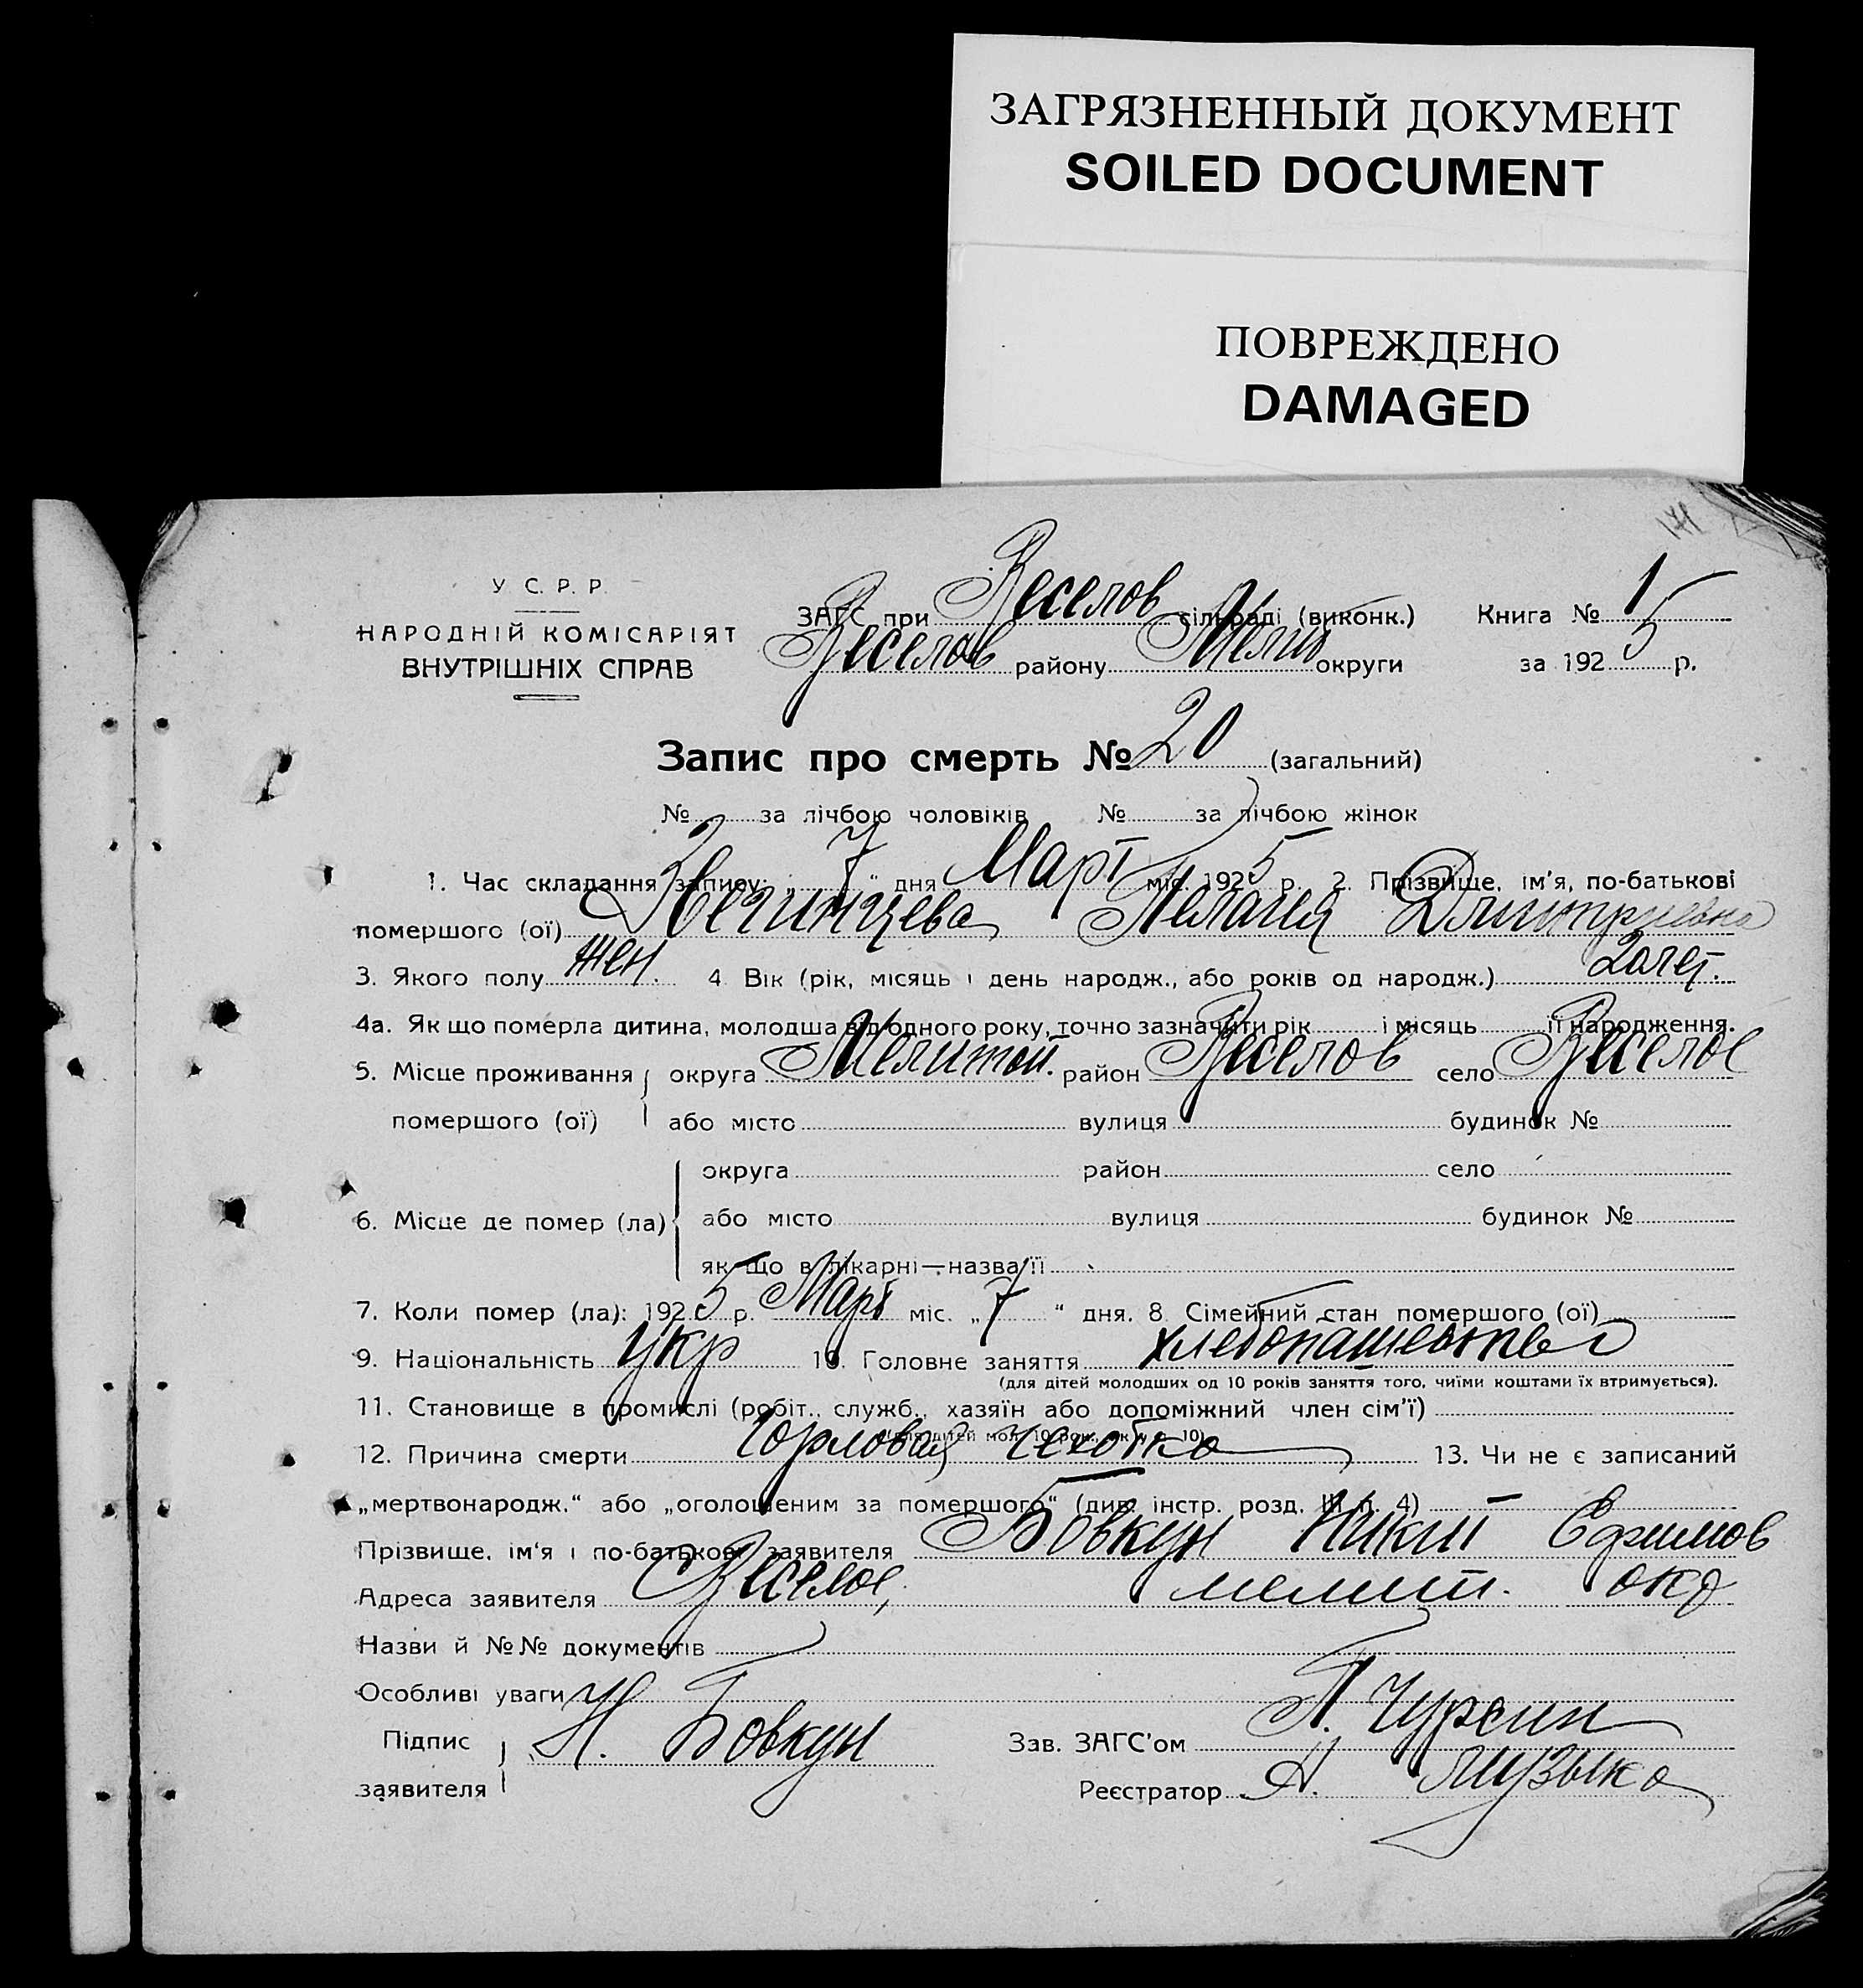 ЗАГРЯЗНЕННЫЙ ДОКУМЕНТ
SOILED DOCUMENT
ПОВРЕЖДЕНО
DAMAGED
У С. Р. Р.
НАРОДНІЙ КОМІСАРІЯТ
ВНУТРІШНІХ СПРАВ
ЗАГС при Веселов сільраді (виконк.) Книга № 1
Веселов району Мелит округи за 1925 р.
Запис про смерть № 20 (загальний)
№ за лічбою чоловіків № за лічбою жінок
1. Час складання запису: „ 7 “ дня Март міс. 1925 р. 2. Прізвище, ім'я, по-батькові
помершого (ої) Пелагея Дмитриевна
3. Якого полу жен. 4. Вік (рік, місяць і день народж., або років од народж.)
4а. Як що померла дитина, молодша від одного року, точно зазначити рік і місяць її народження.
5. Місце проживання округа Мелитоп. район Веселов село Веселое
помершого (ої) або місто вулиця будинок №
округа район село
6. Місце де помер (ла) або місто вулиця будинок №
як що в лікарні—назва її
7. Коли помер (ла): 1925 р. Март міс. „ 7 “ дня. 8. Сімейний стан помершого (ої)
9. Національність укр 10. Головне заняття хлебопашество
(для дітей молодших од 10 років заняття того, чиїми коштами їх втримується).
11. Становище в промислі (робіт., служб., хазяїн або допоміжний член сім'ї)
(для дітей мол. 10 рок., як у п. 10)
12. Причина смерти Горловая чехотка 13. Чи не є записаний
„мертвонародж.“ або „оголошеним за помершого“ (див. інстр. розд. III п. 4) —
Прізвище, ім'я і по-батькові заявителя Бовкун Никит Ефимов
Адреса заявителя Веселое, мелит. окр
Назви й №№ документів
Особливі уваги
Підпис Н. Бовкун Зав. ЗАГС'ом П. Чурсин
заявителя Реєстратор А. Музыка